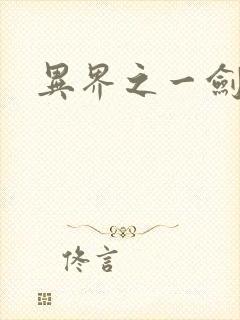 異界之一劍
佟言